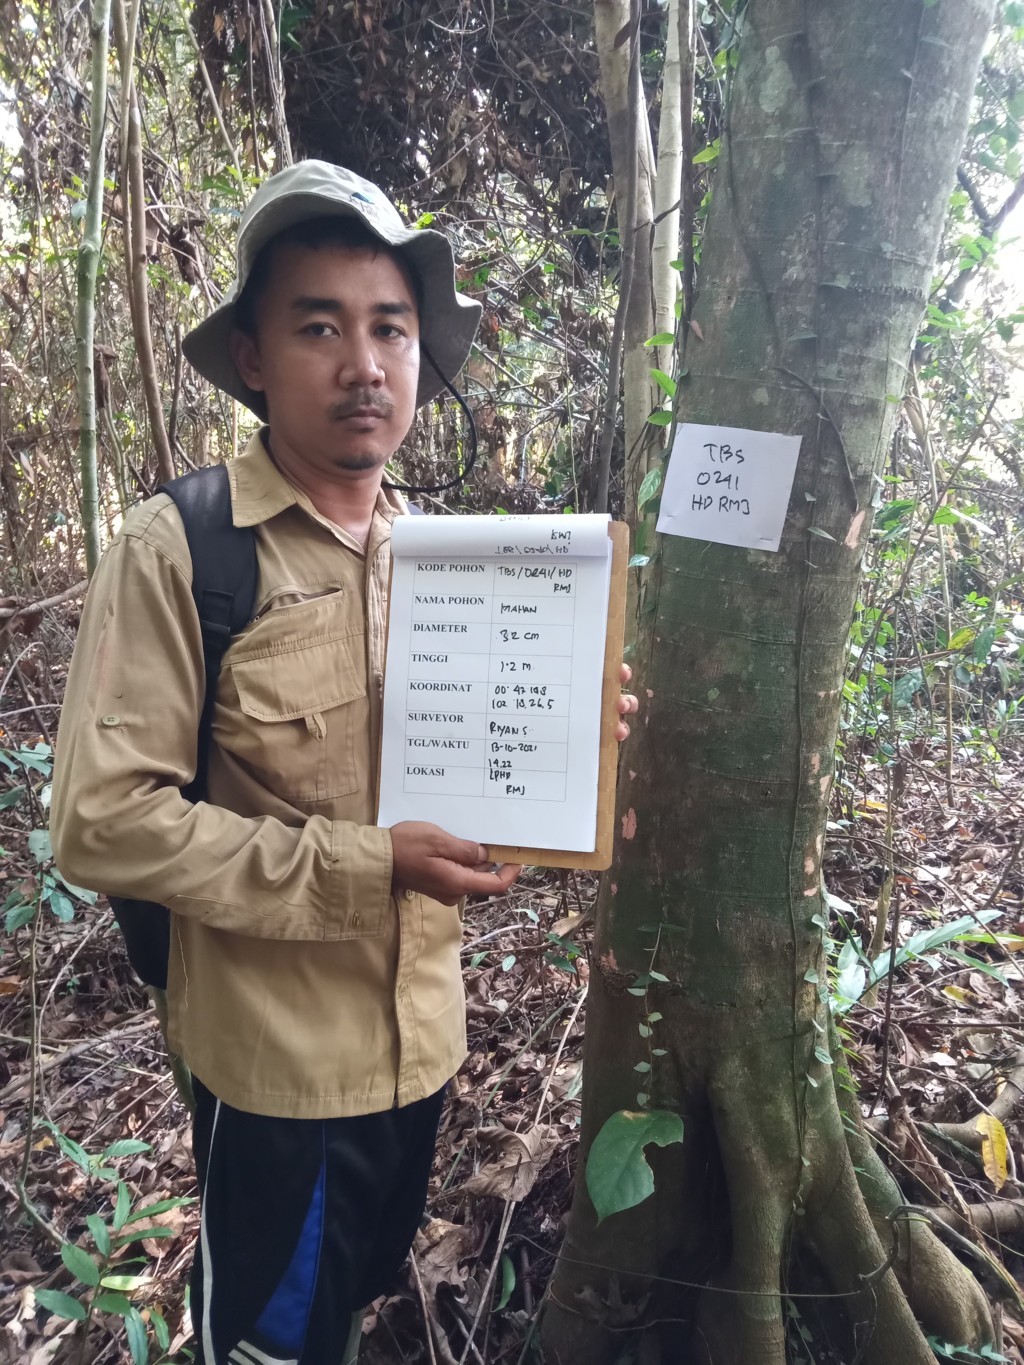 TBS
0241
HD RMJ
KODE POHON TBS/0241/HD
RMJ
NAMA POHON MAHAN
DIAMETER 32 cm
TINGGI 1.2 m
KOORDINAT 00° 47 198
102 18.26.5
SURVEYOR RIYAN S
TGL/WAKTU 13-10-2021
14.22
LOKASI LPHD
RMJ